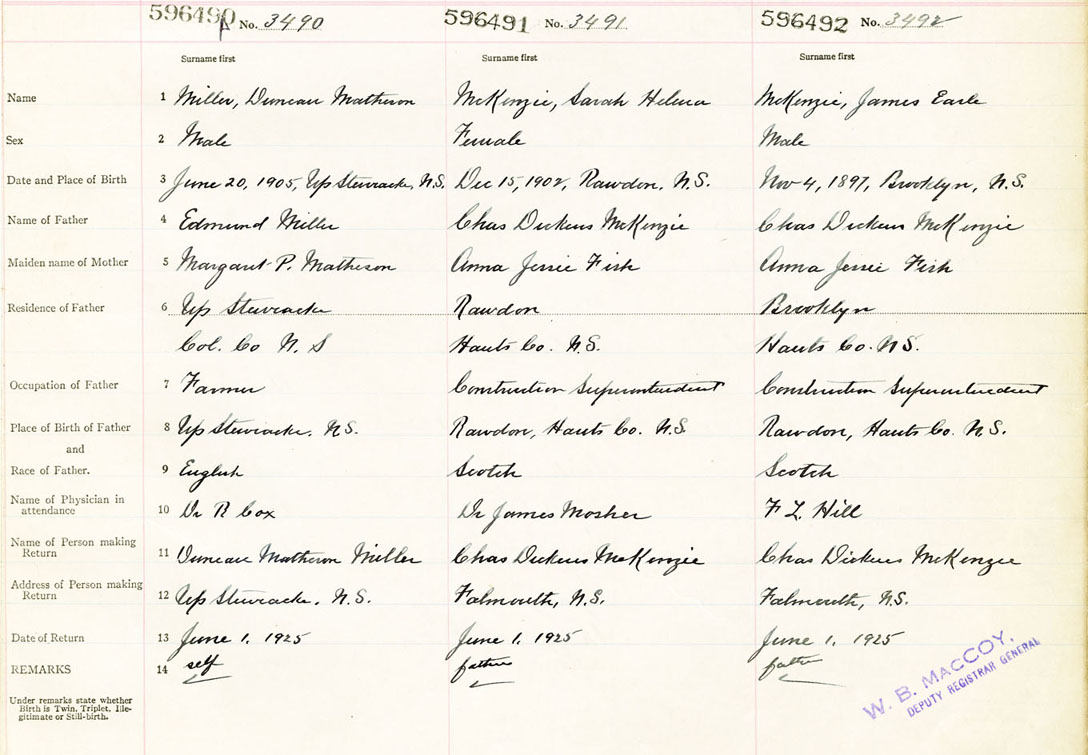 596490 No. 3490 596491 No. 3491 596492 No. 3492
A
Surname first Surname first Surname first
Name 1 Miller, Duncan Matheson McKenzie, Sarah Helena McKenzie, James Earle
Sex 2 Male Female Male
Date and Place of Birth 3 June 20, 1905, Up Stewiacke, N.S. Dec 15, 1902, Rawdon, N.S. Nov 4, 1897, Brooklyn, N.S.
Name of Father 4 Edmund Miller Chas Dickens McKenzie Chas Dickens McKenzie
Maiden name of Mother 5 Margaret P. Matheson Anna Jessie Fish Anna Jessie Fish
Residence of Father 6 Up Stewiacke Rawdon Brooklyn
Col. Co N. S Hants Co. N.S. Hants Co. N.S.
Occupation of Father 7 Farmer Construction Superintendent Construction Superintendent
Place of Birth of Father 8 Up Stewiacke. N.S. Rawdon, Hants Co. N.S. Rawdon, Hants Co. N.S.
and
Race of Father. 9 English Scotch Scotch
Name of Physician in
attendance 10 Dr R Cox Dr James Mosher F L Hill
Name of Person making
Return 11 Duncan Matheson Miller Chas Dickens McKenzie Chas Dickens McKenzie
Address of Person making
Return 12 Up Stewiacke. N.S. Falmouth, N.S. Falmouth, N.S.
Date of Return 13 June 1. 1925 June 1. 1925 June 1. 1925
REMARKS 14 self father father
Under remarks state whether
Birth is Twin, Triplet, Ille-
gitimate or Still-birth.
W. B. MACCOY,
DEPUTY REGISTRAR GENERAL